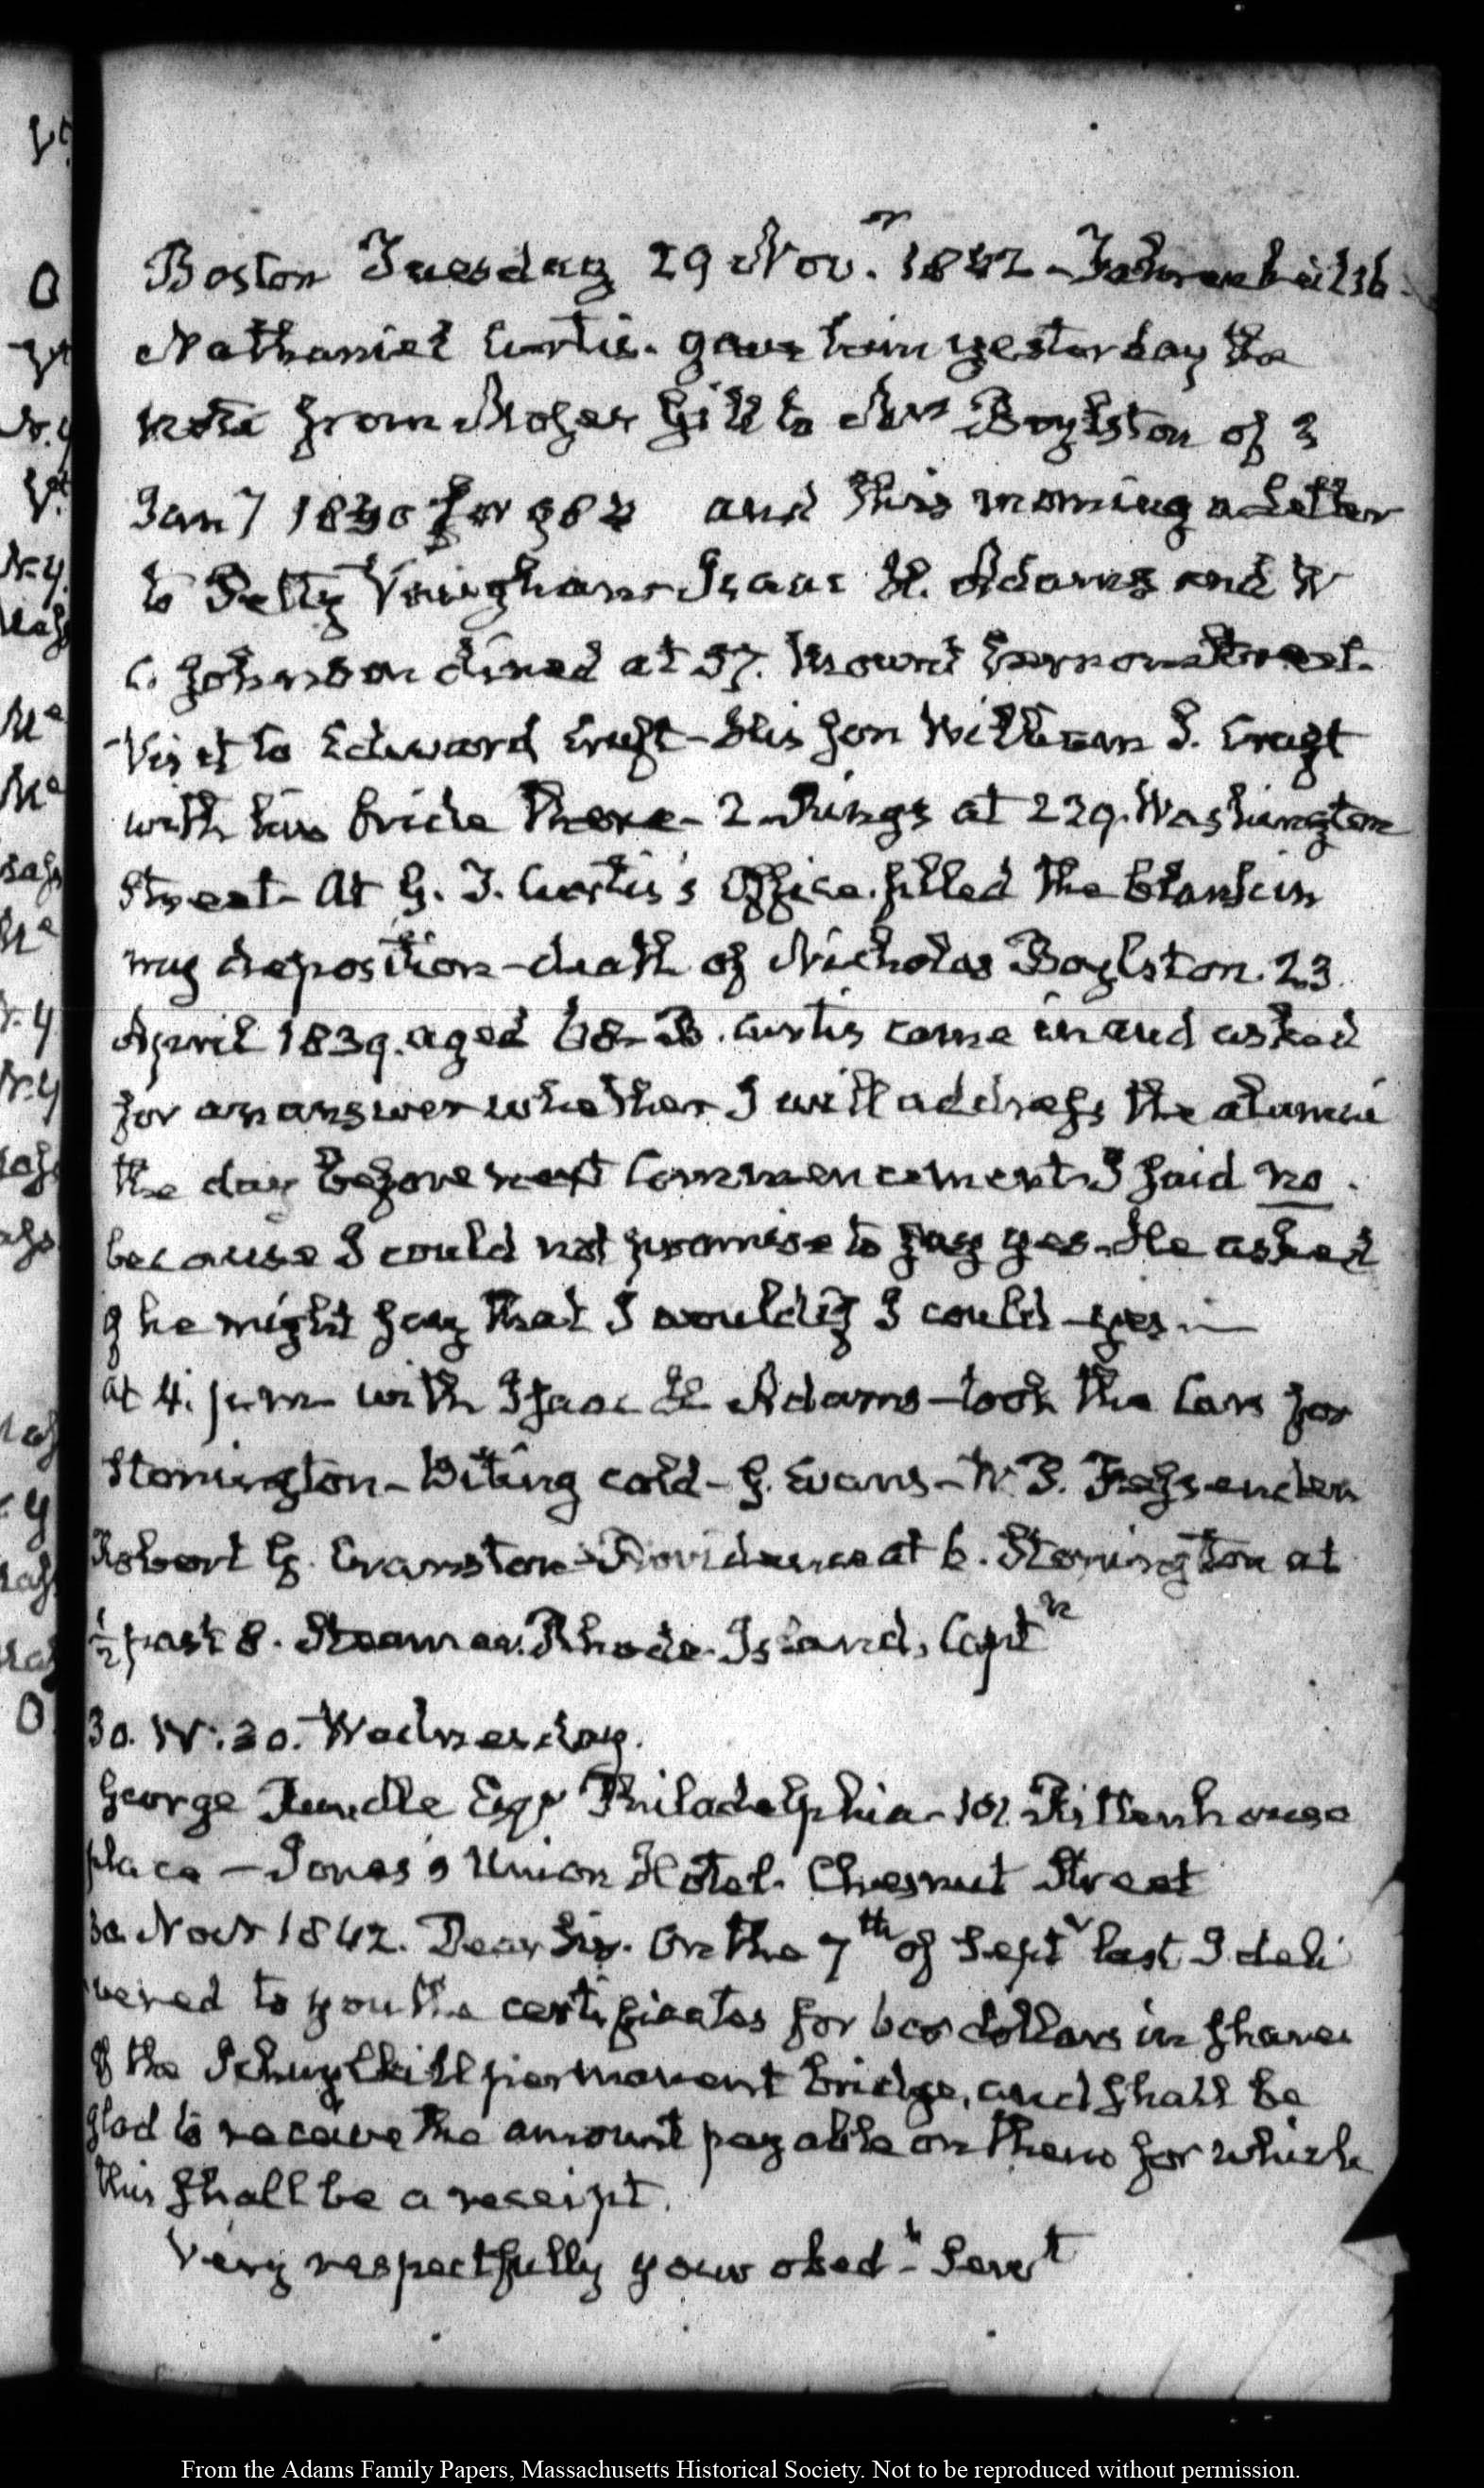 Boston Tuesday 29 Nov.r 1842 - Fahrenheit 26.
Nathaniel Curtis. gave him yesterday the
note from Moses Gill to Mrs Boylston of 3
Jany 1830 for and this morning a letter
to Petty Vaughan - Isaac H. Adams and W
C. Johnson dined at 57. Mount Vernon Street.
Visit to Edward Cruft - His son William S. Cruft
with his bride there - 2 Rings at 229. Washington
Street - At G. T. Curtis's Office. filled the blank in
my deposition - death of Nicholas Boylston. 23
April 1839. aged 68 - B. Curtis came in and asked
for an answer whether I will address the alumni
the day before next Commencement. I said no.
because I could not promise to say yes. He asked
if he might say that I would if I could - yes. —
at 4. p.m. with Isaac H Adams - took the Cars for
Stonington - Biting cold - G. Evans - W. P. Fessenden
Robert B. Cranston - Providence at 6. Stonington at
½ past 8. Steamer. Rhode-Island, Captn
30. IV:30. Wednesday.
George Rundle Esqr Philadelphia - 101 Rittenhouse
place - Jones's Union Hotel. Chesnut Street
30. Novr 1842. Dear Sir. On the 7th of Septr last I deli
vered to you the certificates for 600 dollars in shares
of the Schuylkill permanent bridge, and shall be
glad to receive the amount payable on them for which
this shall be a receipt.
Very respectfully your obedt Servt
From the Adams Family Papers, Massachusetts Historical Society. Not to be reproduced without permission.